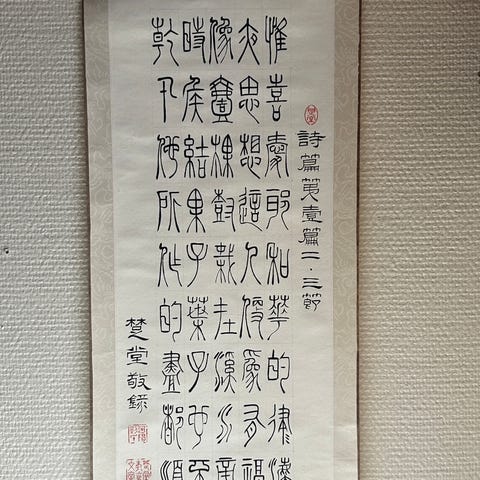 詩篇第壹篇二.三節
惟喜愛耶和華的律法
夜思想這人便為有福
像壹棵樹栽在溪水旁
時候結果子葉子也不
乾凡他所作的盡都順
楚堂敬錄